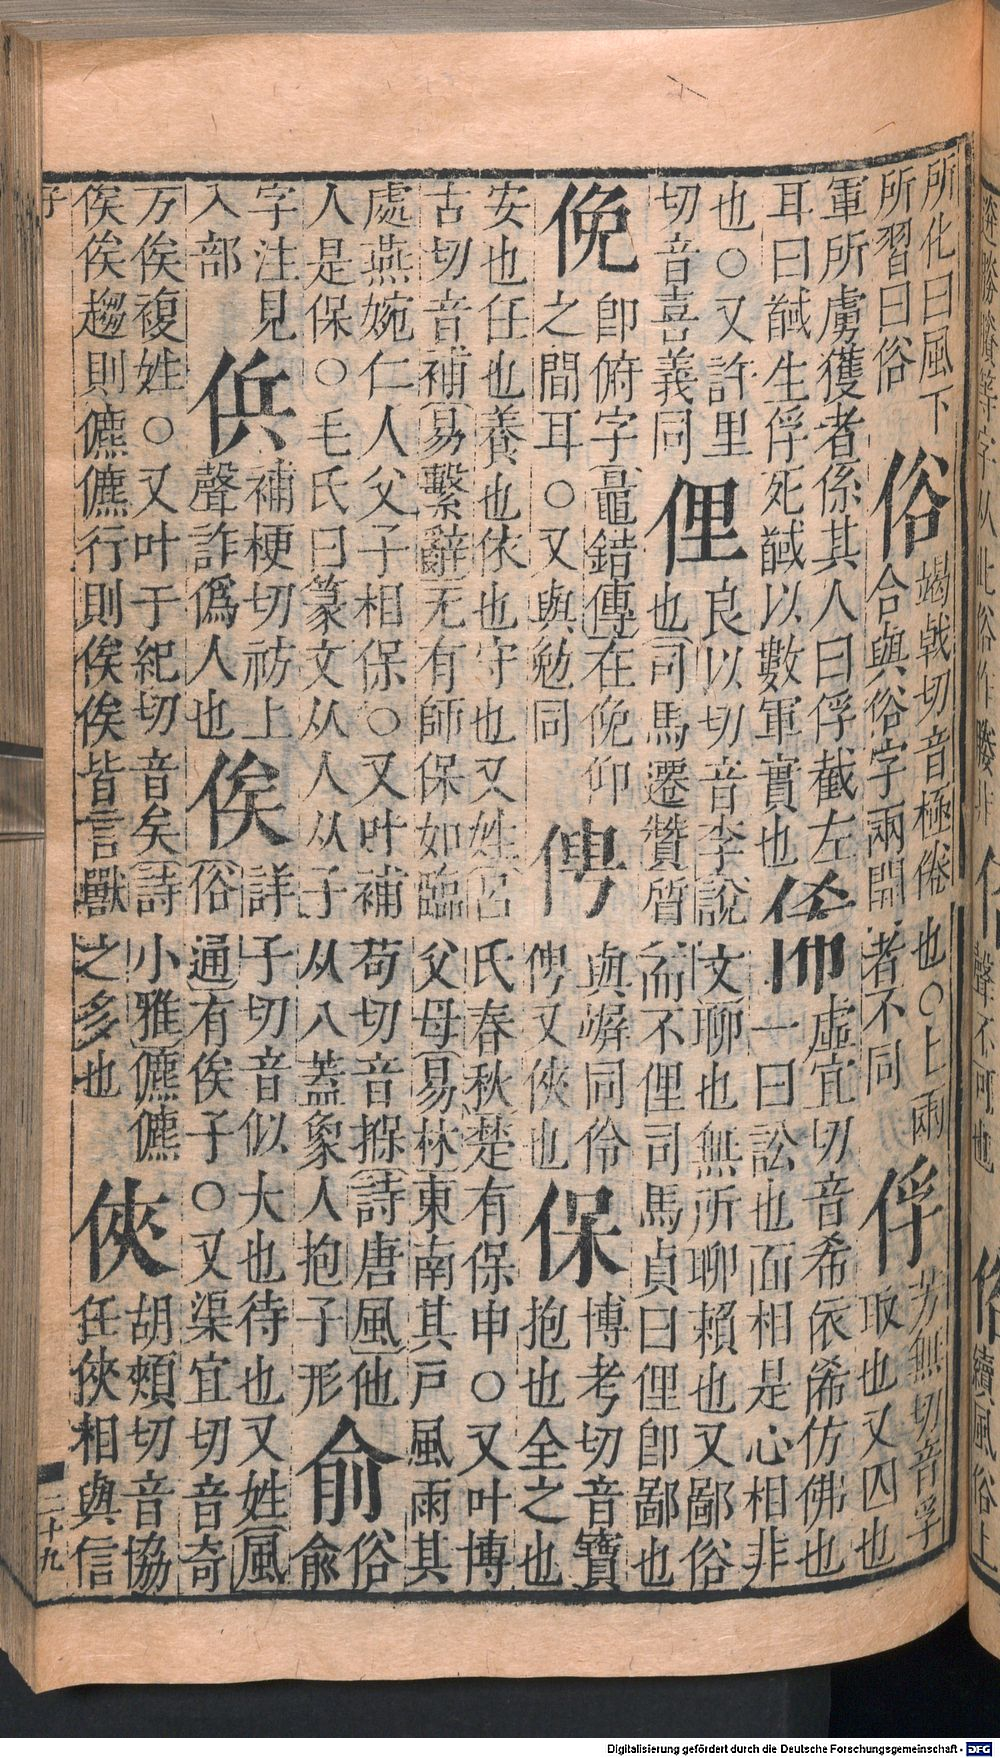 所化曰風下
所習曰俗
俗
竭戟切音極倦也○上兩
合與俗字兩開者不同
俘
芳無切音孚
取也又囚也
軍所虜獲者係其人曰俘截左
耳曰馘生俘死馘以數軍實也
俙
虛宜切音希依俙仿佛也
一曰訟也面相是心相非
也○又許里
切音喜義同
俚
良以切音李說文聊也無所聊賴也又鄙俗
也司馬遷贊質而不俚司馬貞曰俚卽鄙也
俛
卽俯字鼂錯傳在俛仰
之間耳○又與勉同
俜
與竮同伶
俜又俠也
保
博考切音寶
抱也全之也
安也任也養也依也守也又姓呂氏春秋楚有保申○又叶博
古切音補易繫辭无有師保如臨父母易林東南其戶風雨其
處燕婉仁人父子相保○又叶補苟切音掊詩唐風他
人是保○毛氏曰篆文从人从子从八蓋象人抱子形
俞
俗
兪
字注見
入部
㑟
補梗切祊上
聲詐僞人也
俟
詳子切音似大也待也又姓風
俗通有俟子○又渠宜切音奇
万俟複姓○又叶于紀切音矣詩小雅儦儦
俟俟趨則儦儦行則俟俟皆言獸之多也
俠
胡頰切音協
任俠相與信
子
二十九
Digitalisierung gefördert durch die Deutsche Forschungsgemeinschaft - DFG